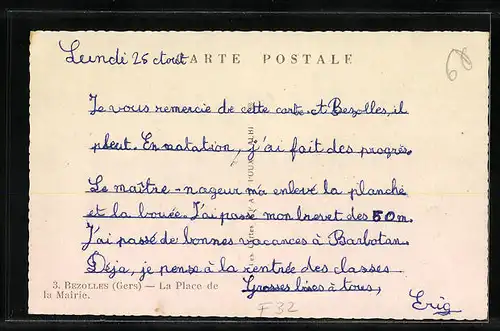 Lundi 28 Août CARTE POSTALE
68
Je vous remercie de cette carte. A Bezolles, il
pleut. En natation, j'ai fait des progrès.
Le maître-nageur m'a enlevé la planche
et la bouée. J'ai passé mon brevet des 50 m.
J'ai passé de bonnes vacances à Barbotan.
Déja, je pense à la rentrée des classes
Grosses bises à tous,
Eric
3. BEZOLLES (Gers) — La Place de
la Mairie.
F32